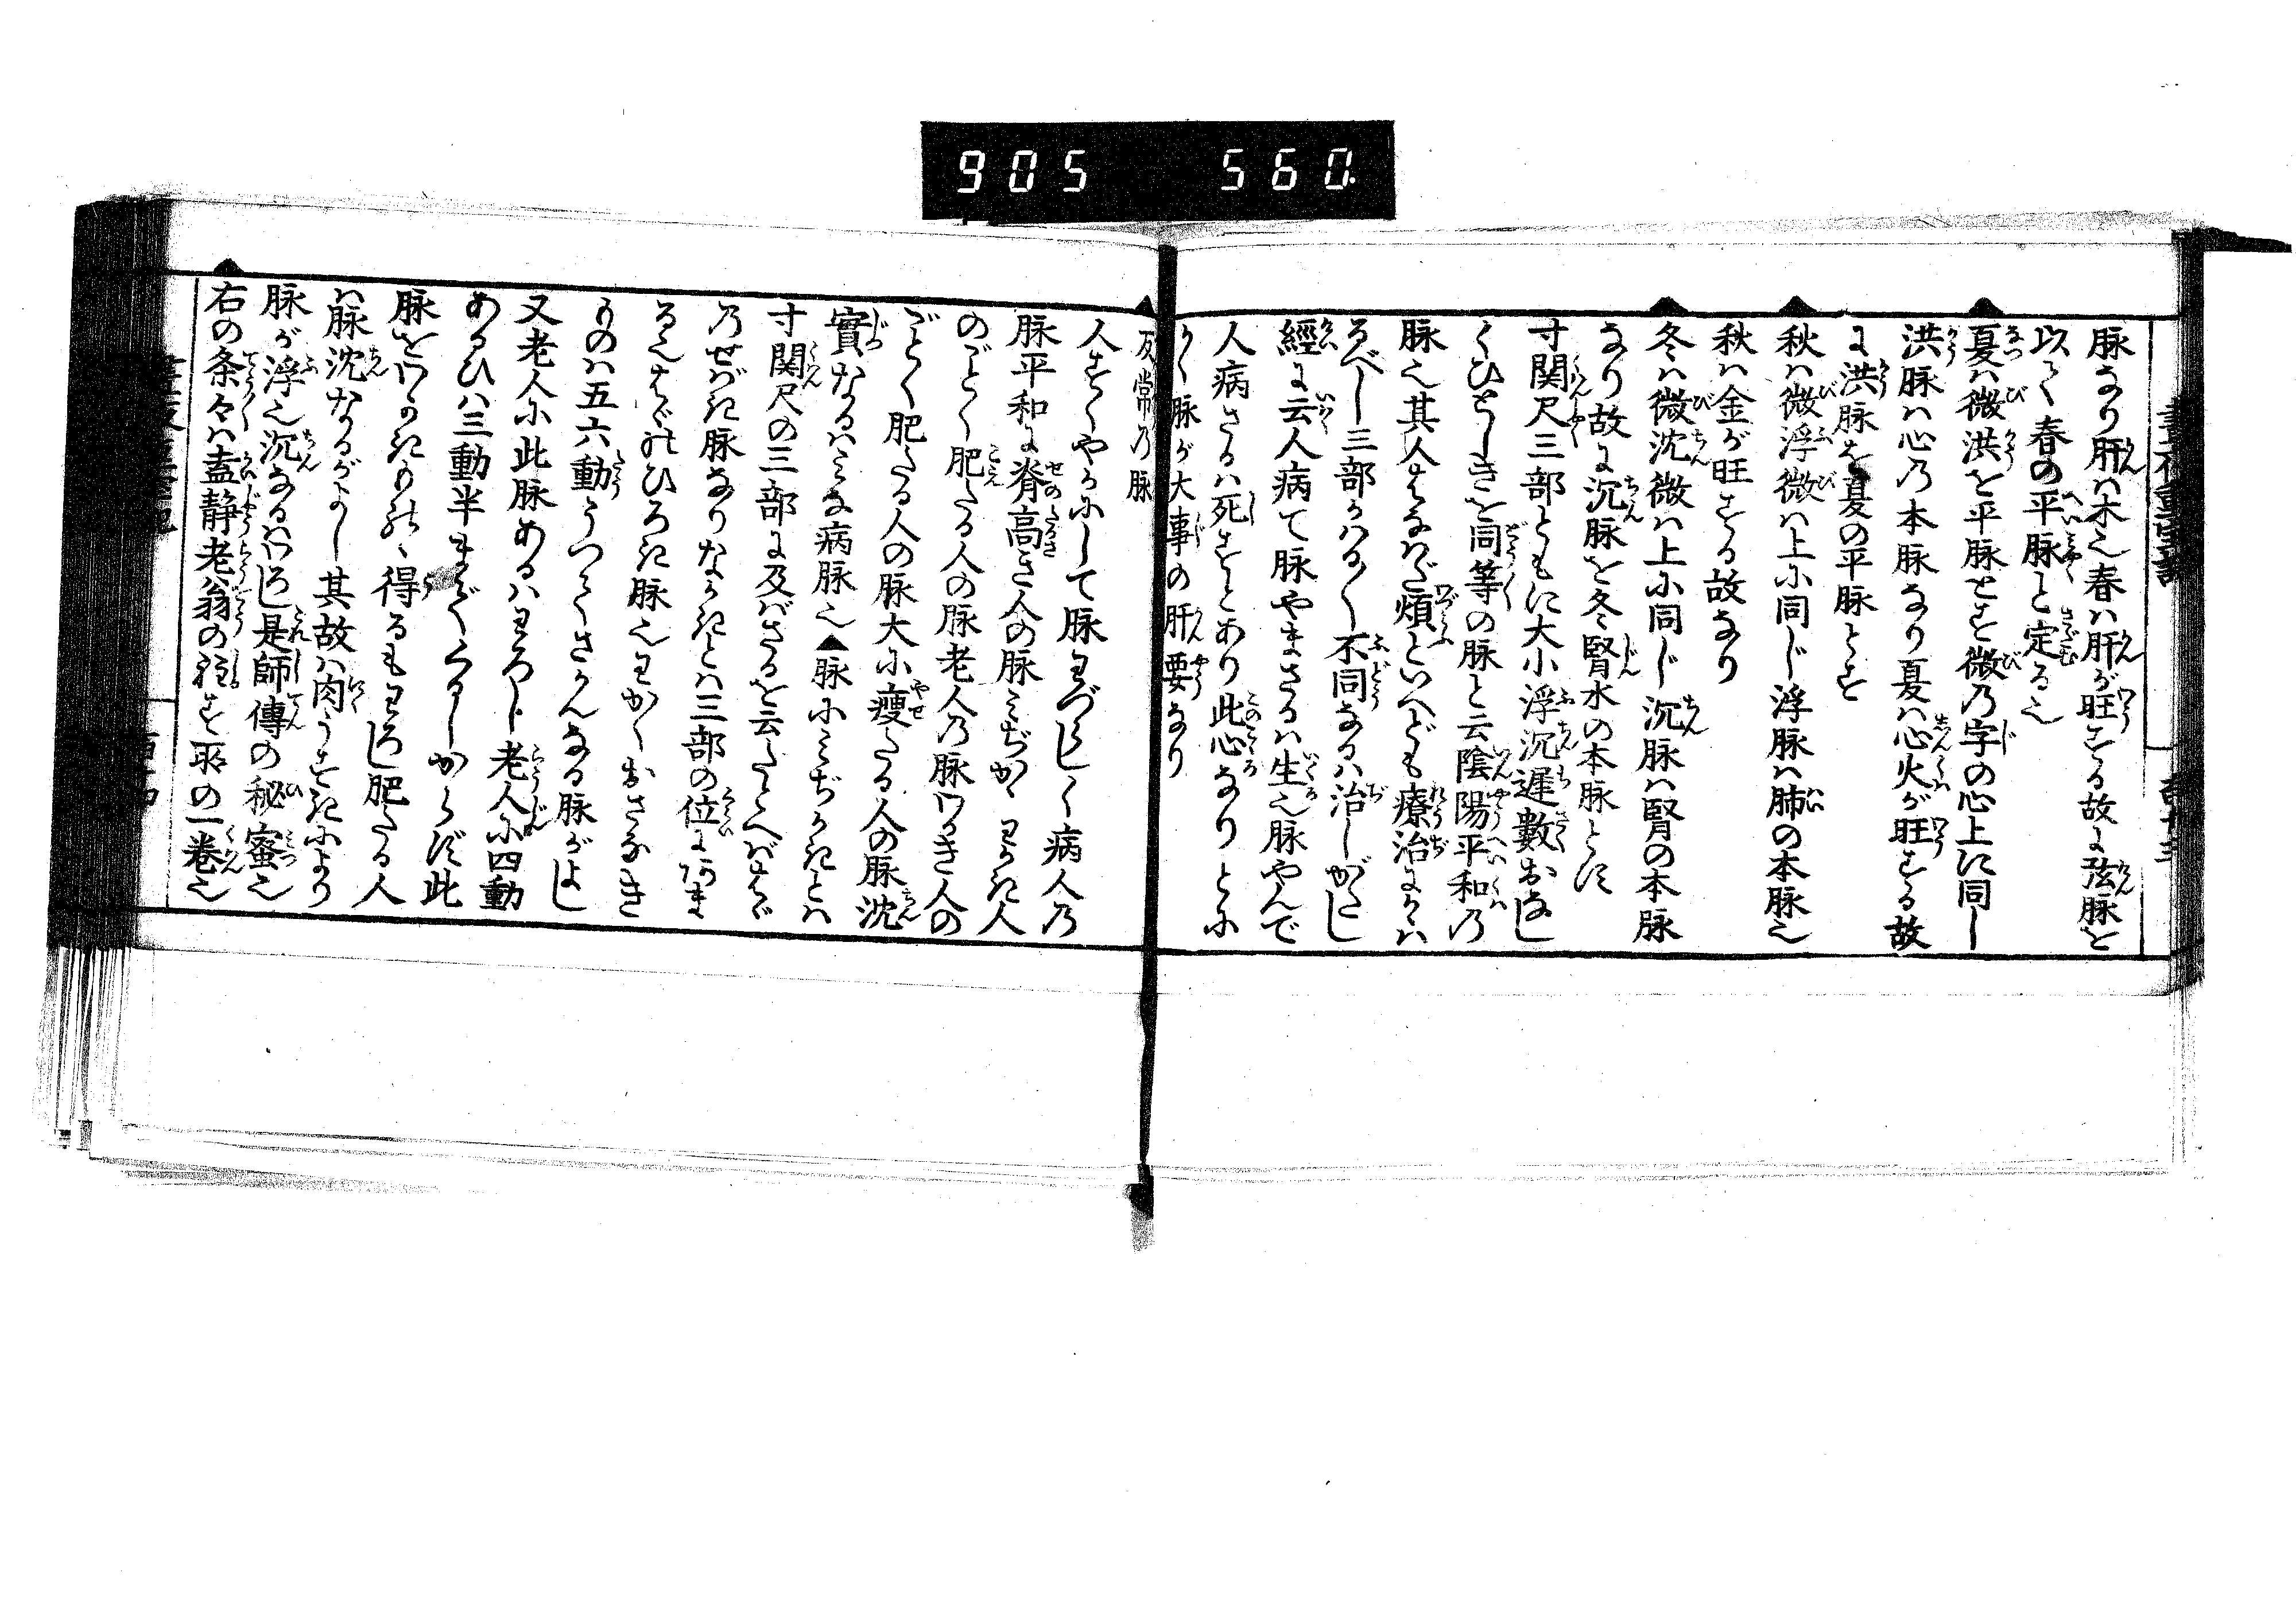 905 560
脉なり肝ハ木也春ハ肝が旺する故に弦脉を
以て春の平脉と定る也
夏ハ微洪を平脉とす微乃字の心上に同し
洪脉ハ心乃本脉なり夏ハ心火が旺する故
に洪脉を夏の平脉とす
秋ハ微浮微ハ上に同じ浮脉ハ肺の本脉也
秋ハ金が旺する故なり
冬ハ微沈微ハ上に同じ沉脉ハ腎の本脉
なり故に沉脉を冬腎水の本脉とす
寸関尺三部ともに大小浮沉遲數おなし
くひとしきを同等の脉と云陰陽平和乃
脉也其人はなはだ煩といへども療治よくハ
るべし三部かハる〳〵不同なるハ治しがたし
經に云人病て脉やまざるハ生也脉やんで
人病ざるハ死すとあり此心なりとに
かく脉が大事の肝要なり
反常乃脉
人すくやかにして脉わづらしく病人乃
脉平和に脊高き人の脉みぢかくわかき人
のごとく肥たる人の脉老人乃脉わかき人の
ごとく肥たる人の脉大に瘦たる人の脉沈
實なるハみな病脉也▲脉にみぢかきとハ
寸関尺の三部に及バざるを云たとへバはゞ
乃せばき脉なりながきとハ三部の位にあま
る也はゞのひろき脉也わかくおさなき
ものハ五六動うつてさかんなる脉がよし
又老人に此脉あるハわろし老人に四動
あるひハ三動半まではくるしからず此
脉をわかきもの得るもわろし肥たる人
ハ脉沈なるがよし其故ハ肉うすきにより
脉が浮也沉なるハわろし是師傳の秘蜜也
右の条々ハ盖静老翁の註す所の一巻也